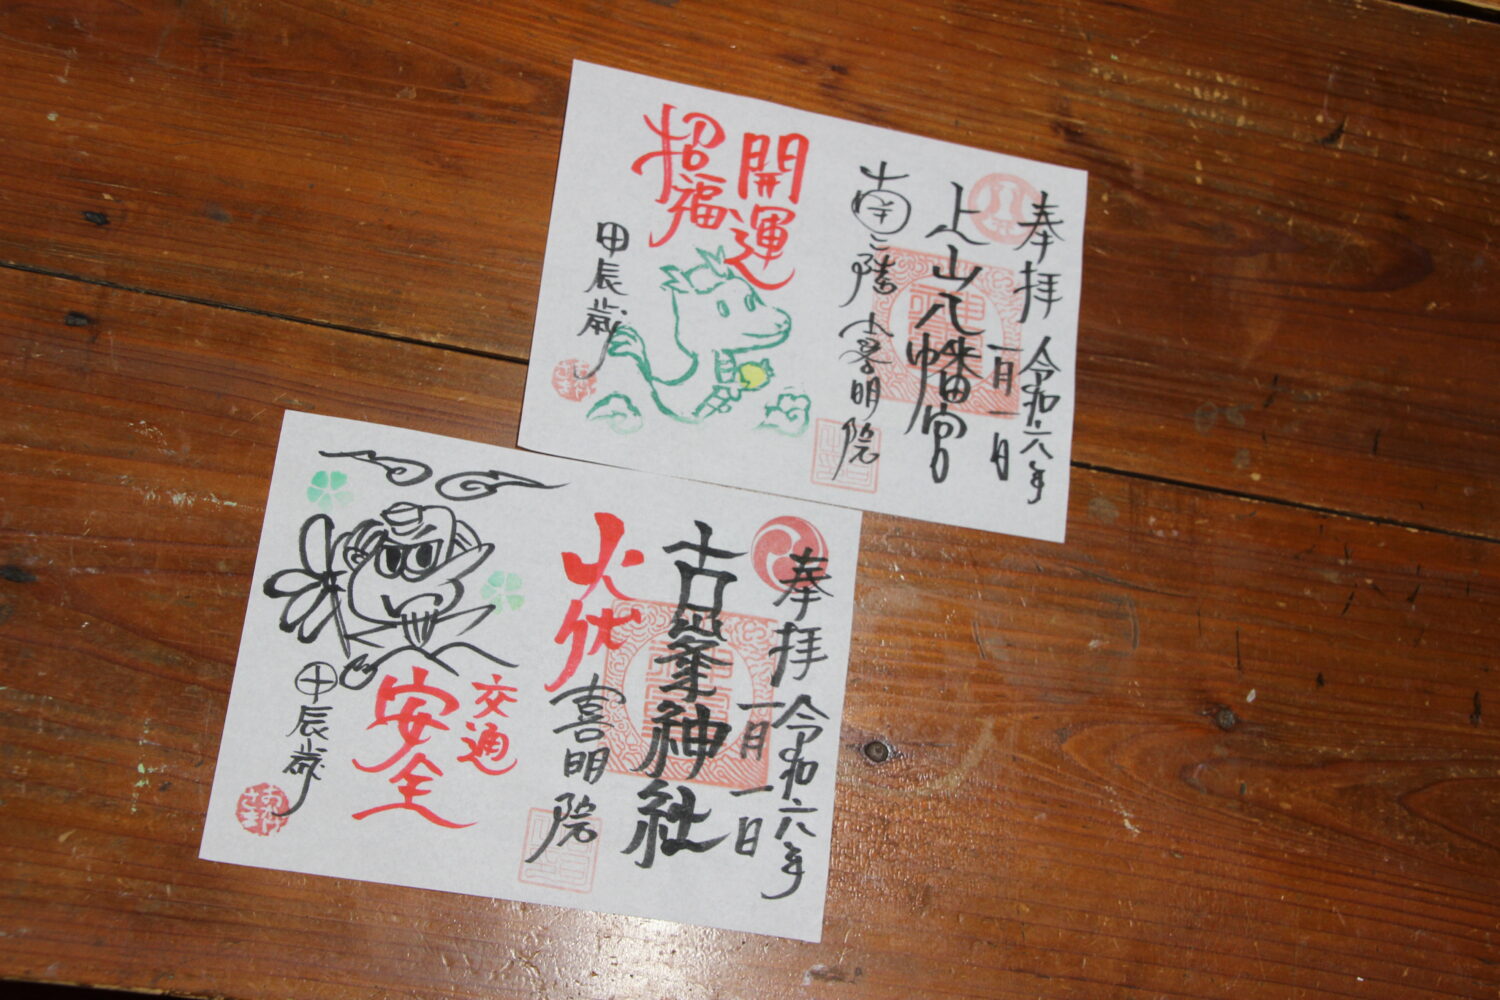 奉拝
令和六年
一月一日
上山八幡宮
南三陸
喜明院
開運
招福
甲辰歳
奉拝
令和六年
一月一日
古峯神社
火伏
喜明院
交通
安全
甲辰歳